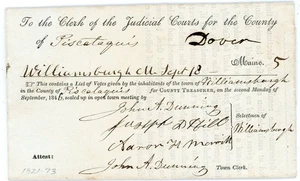 To the Clerk of the Judicial Courts for the County
of Piscataquis Dover
Maine. 5
Williamsburgh Me Sept 13
This contains a List of Votes given by the inhabitants of the town of Williamsburgh
in the County of Piscataquis for COUNTY TREASURER, on the second Monday of
September, 184 sealed up in open town meeting by
John A. Dunning
Joseph D Hill
Aaron H Merrill
Selectmen of
Williamsburgh
Attest:
John A. Dunning Town Clerk.